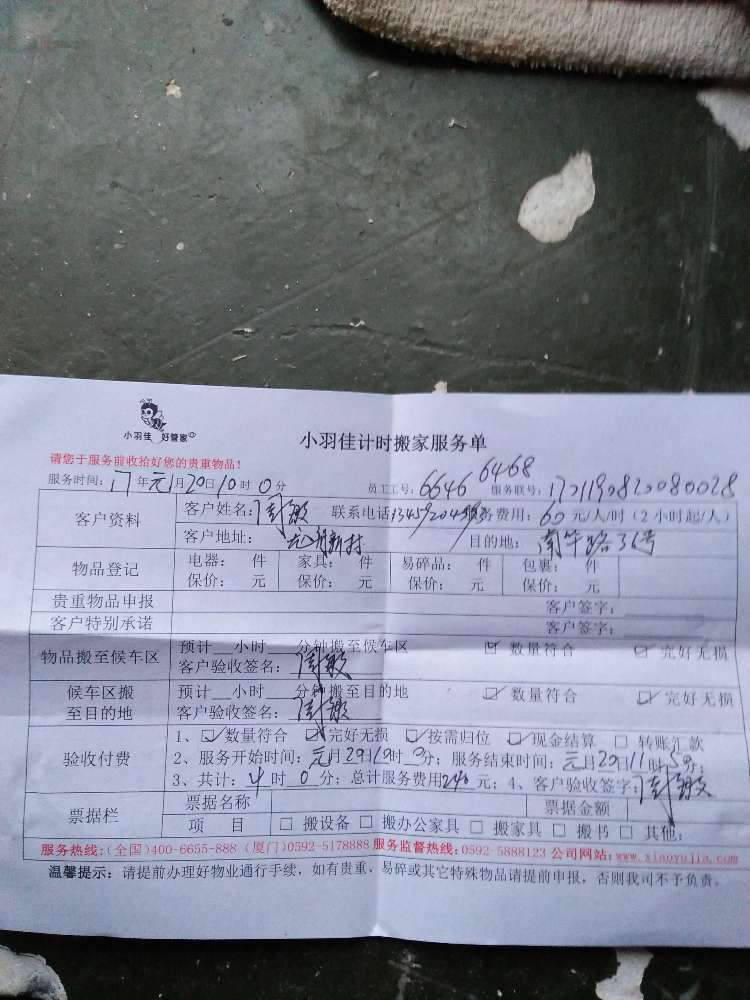 小羽佳 好管家
小羽佳计时搬家服务单
请您于服务前收拾好您的贵重物品！
服务时间：17年元月20日10时0分 员工工号：6646 6468 服务联号：
客户资料 客户姓名： 联系电话 服务费用：60元/人/时（2小时起/人）
客户地址： 新村 目的地：南华路 号
物品登记 电器： 件 家具： 件 易碎品： 件 包裹： 件
保价： 元 保价： 元 保价： 元 保价： 元
贵重物品申报 客户签字：
客户特别承诺 客户签字：
物品搬至候车区 预计__小时__分钟搬至候车区 ☑数量符合 ☑完好无损
客户验收签名：
候车区搬至目的地 预计__小时__分钟搬至目的地 ☑数量符合 ☑完好无损
客户验收签名：
验收付费 1、☑数量符合 ☑完好无损 ☑按需归位 ☑现金结算 □转账汇款
2、服务开始时间：元月 日 时 分；服务结束时间：元月 日11时 分；
3、共计：4时0分；总计服务费用240元；4、客户验收签字：
票据栏 票据名称 票据金额
项 目 □搬设备 □搬办公家具 □搬家具 □搬书 □其他：
服务热线：(全国)400-6655-888 (厦门)0592-5178888 服务监督热线：0592-5888123 公司网站：www.xiaoyujia.com
温馨提示：请提前办理好物业通行手续，如有贵重、易碎或其它特殊物品请提前申报，否则我司不予负责。